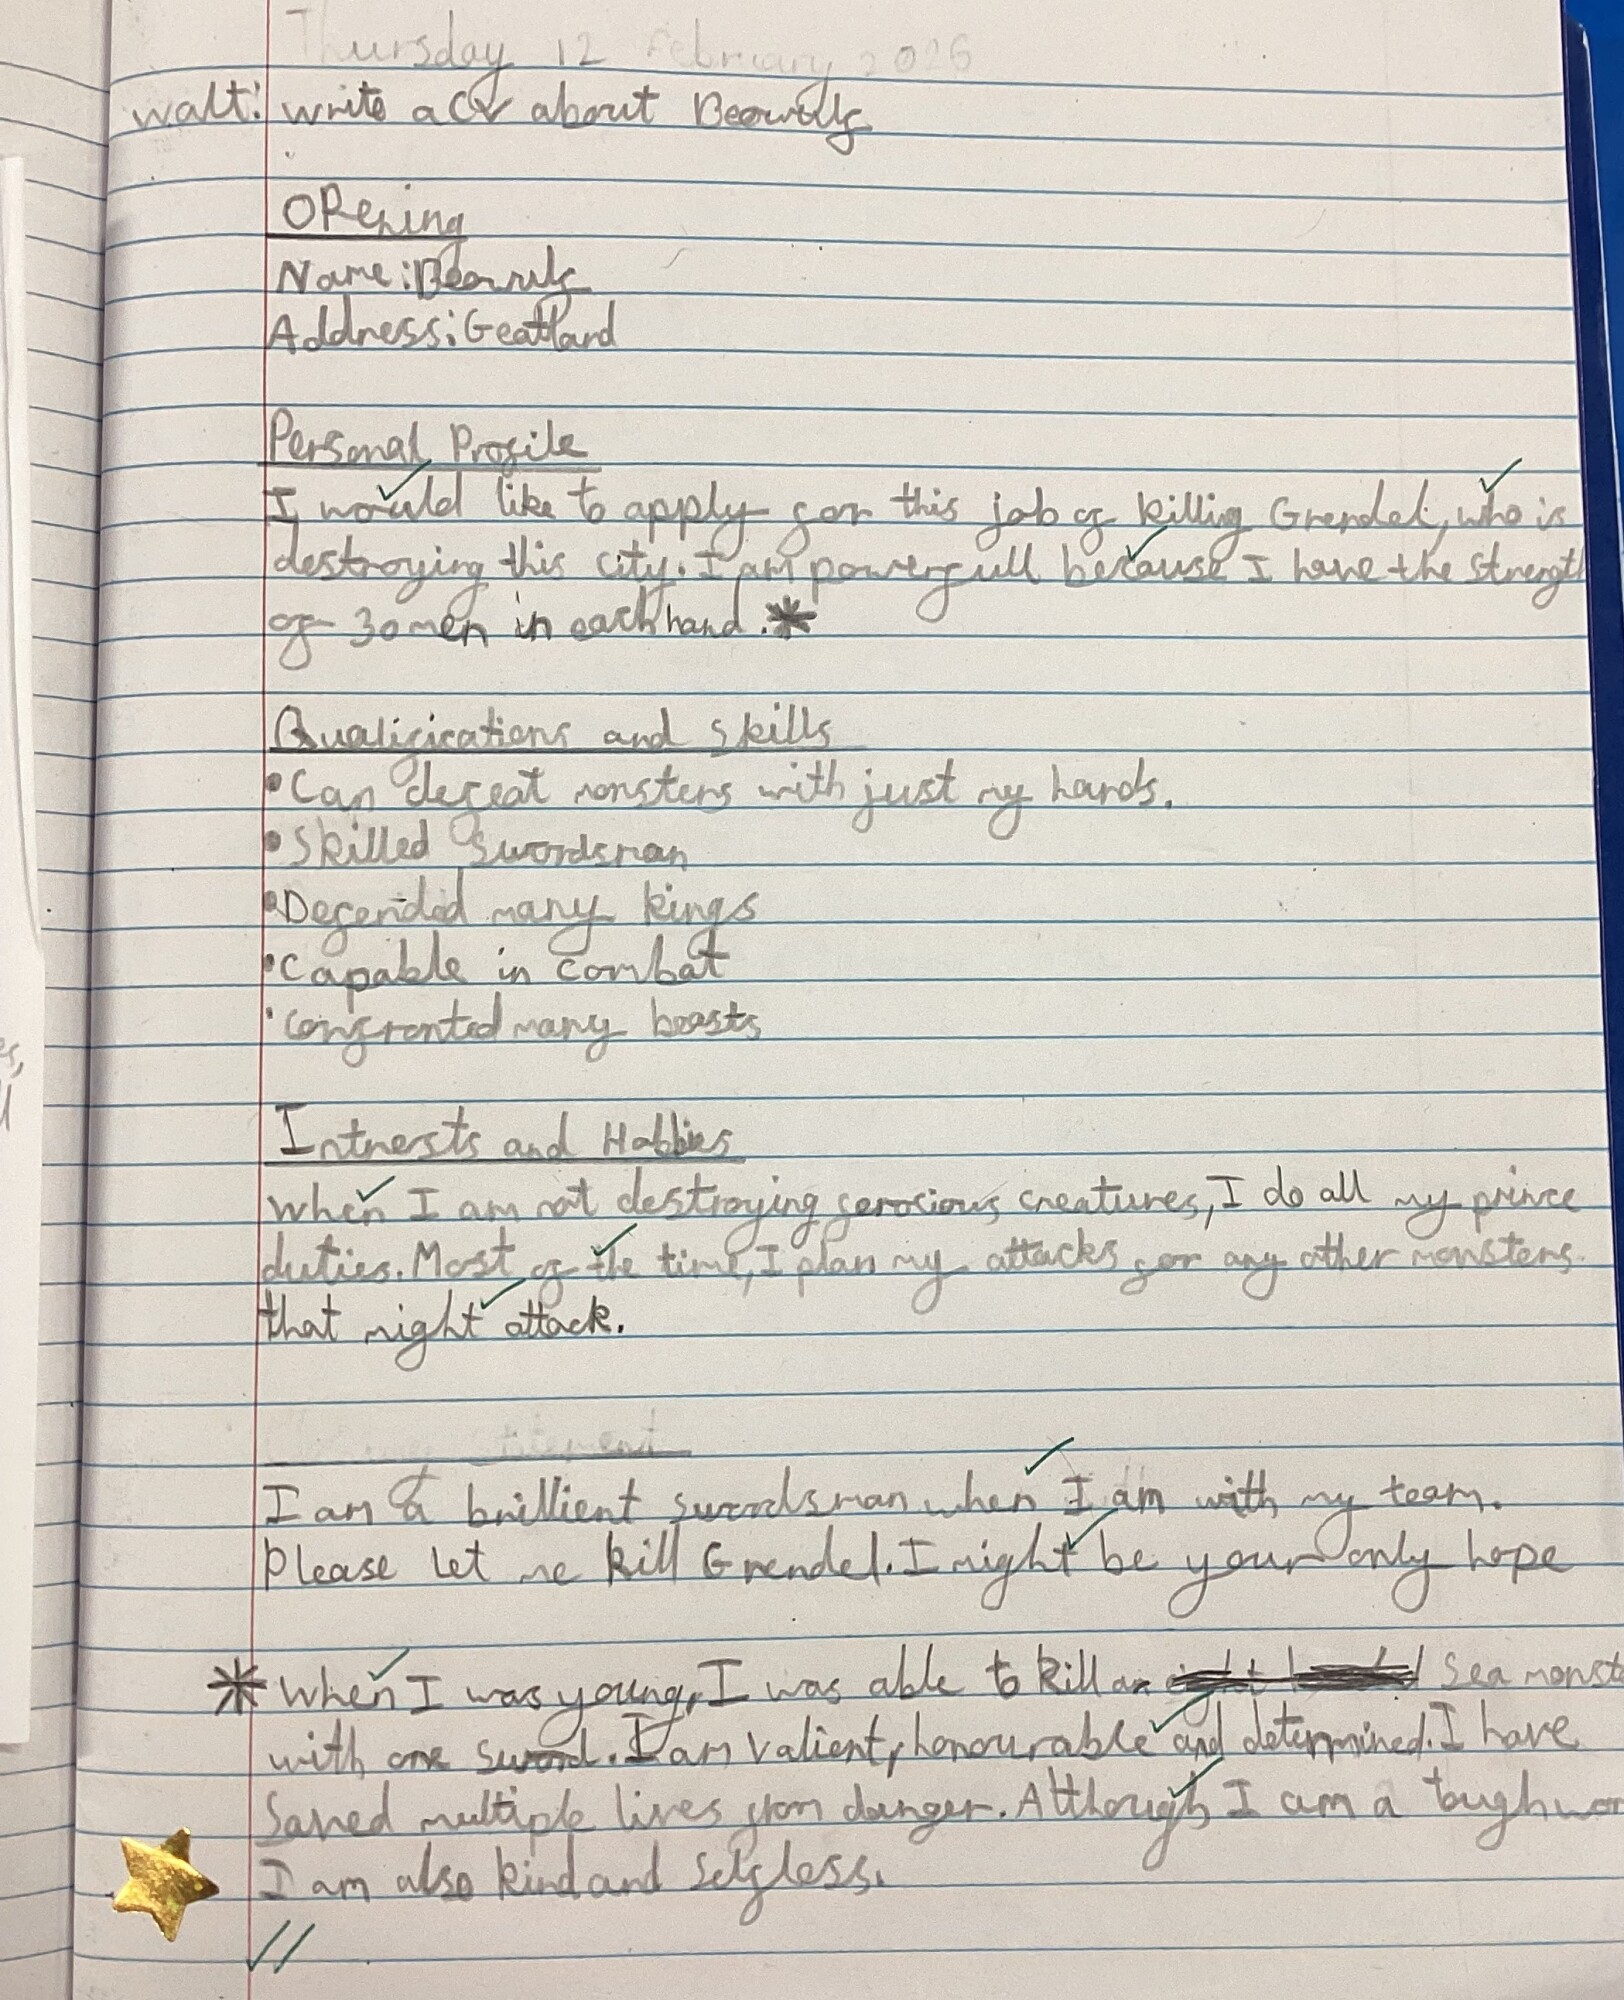 Thursday 12 February 2026
walt: write a CV about Beowulf
Opening
Name: Beowulf
Address: Geatland
Personal Profile
I would like to apply for this job of killig Grendel, who is
destroying this city. I am powerfull because I have the strength
of 30 men in each hand. *
Qualificications and skills
• Can defeat monsters with just my hands.
• Skilled swordsman
• Defended many kings
• Capable in combat
• Confronted many beasts
Intrests and Hobbies
When I am not destroying ferocious creatures, I do all my prince
duties. Most of the time, I plan my attacks for any other monsters.
that might attack.
I am a brillient swordsman when I am with my team.
Please let me kill Grendel. I might be your only hope
* When I was young, I was able to kill an Sea monst
with one sword. I am valient, honourable and determined. I have
Saved multiple lives from danger. Although I am a tough
I am also kind and selfless.